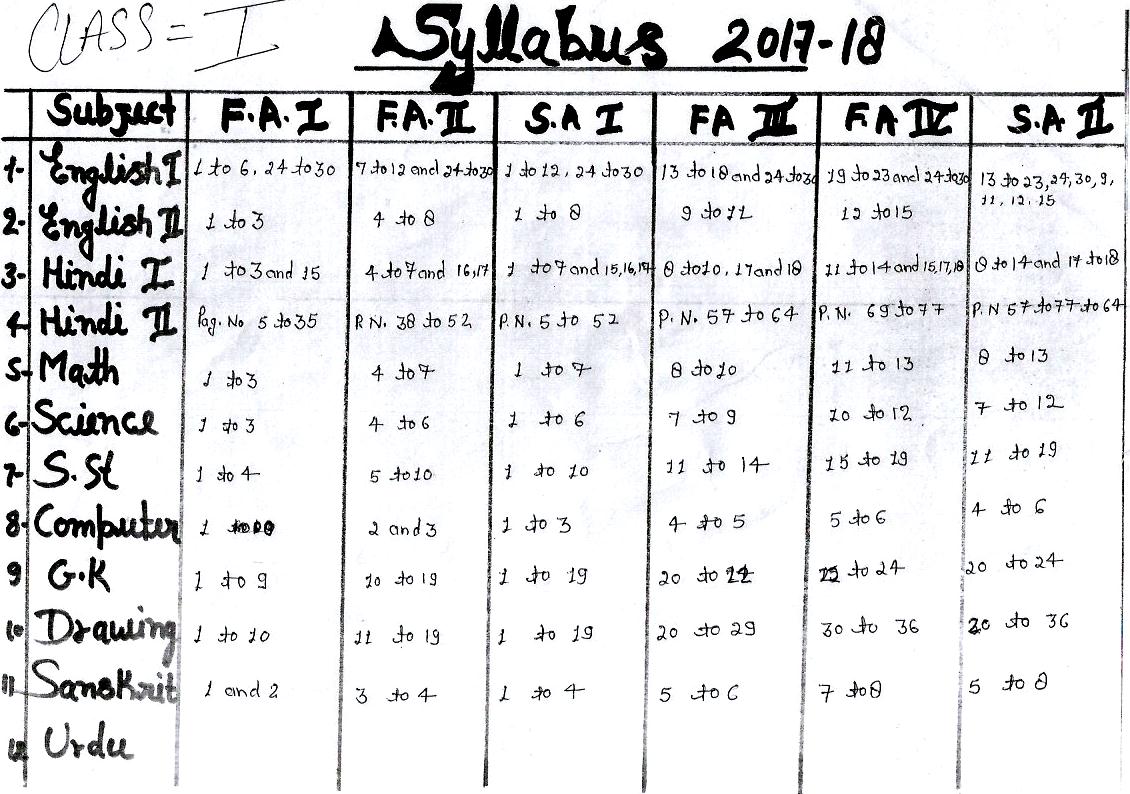 CLASS = I
Syllabus 2017-18
Subject F.A. I F.A. II S.A I FA III F.A IV S.A II
1- English I 1 to 6, 24 to 30 7 to 12 and 24 to 30 1 to 12, 24 to 30 13 to 18 and 24 to 30 19 to 23 and 24 to 30 13 to 23, 29, 30, 9,
11, 12, 15
2- English II 1 to 3 4 to 8 1 to 8 9 to 11 12 to 15
3- Hindi I 1 to 3 and 15 4 to 7 and 16, 17 1 to 7 and 15, 16, 17 8 to 10, 17 and 18 11 to 14 and 15, 17, 18 8 to 14 and 17 to 18
4- Hindi II Pag. No 5 to 35 P.N. 38 to 52 P.N. 5 to 52 P.N. 57 to 64 P.N. 69 to 77 P.N 57 to 77 to 64
5- Math 1 to 3 4 to 7 1 to 7 8 to 10 11 to 13 8 to 13
6- Science 1 to 3 4 to 6 1 to 6 7 to 9 10 to 12 7 to 12
7- S.St 1 to 4 5 to 10 1 to 10 11 to 14 15 to 19 11 to 19
8- Computer 1 2 and 3 1 to 3 4 to 5 5 to 6 4 to 6
9 G.K 1 to 9 10 to 19 1 to 19 20 to to 24 20 to 24
10 Drawing 1 to 10 11 to 19 1 to 19 20 to 29 30 to 36 20 to 36
11 Sanskrit 1 and 2 3 to 4 1 to 4 5 to 6 7 to 8 5 to 8
12 Urdu